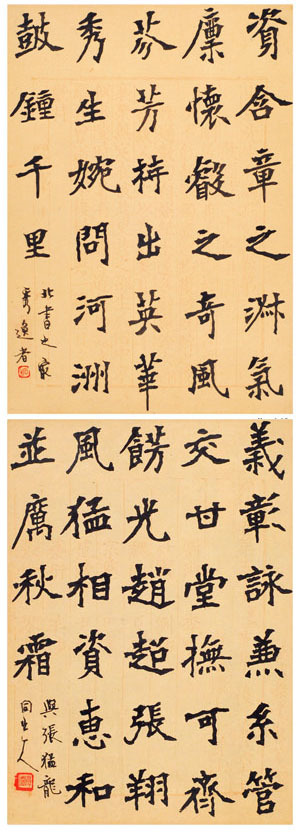 資含章之淑氣
廩懷叡之奇風
芬芳特出英華
秀生婉問河洲
鼓鐘千里
北書之最
秀逸者
義彰詠兼系管
交甘堂撫可齊
餝光趙超張翔
風猛相資恵和
並厲秋霜
與張猛龍
同出一人